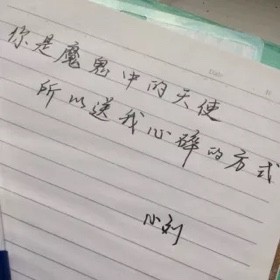 你是魔鬼中的天使
所以送我心碎的方式
小刘